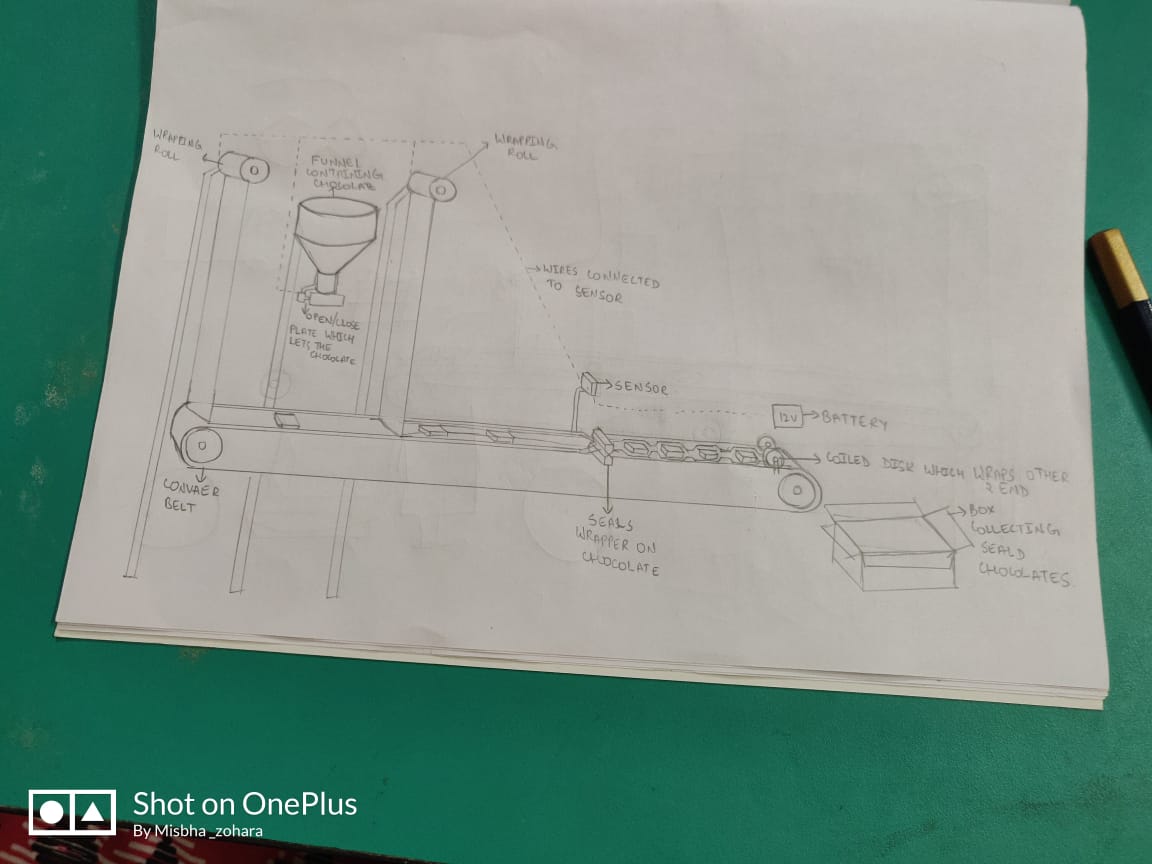 WRAPPING
ROLL
FUNNEL
CONTAINING
CHOCOLATE
WRAPPING
ROLL
WIRES CONNECTED
TO SENSOR
OPEN/CLOSE
PLATE WHICH
LETS THE
CHOCOLATE
SENSOR
12V
BATTERY
COILED DISK WHICH WRAPS OTHER
2 END
CONVAER
BELT
SEALS
WRAPPER ON
CHOCOLATE
BOX
COLLECTING
SEALD
CHOCOLATES
Shot on OnePlus
By Misbha_zohara